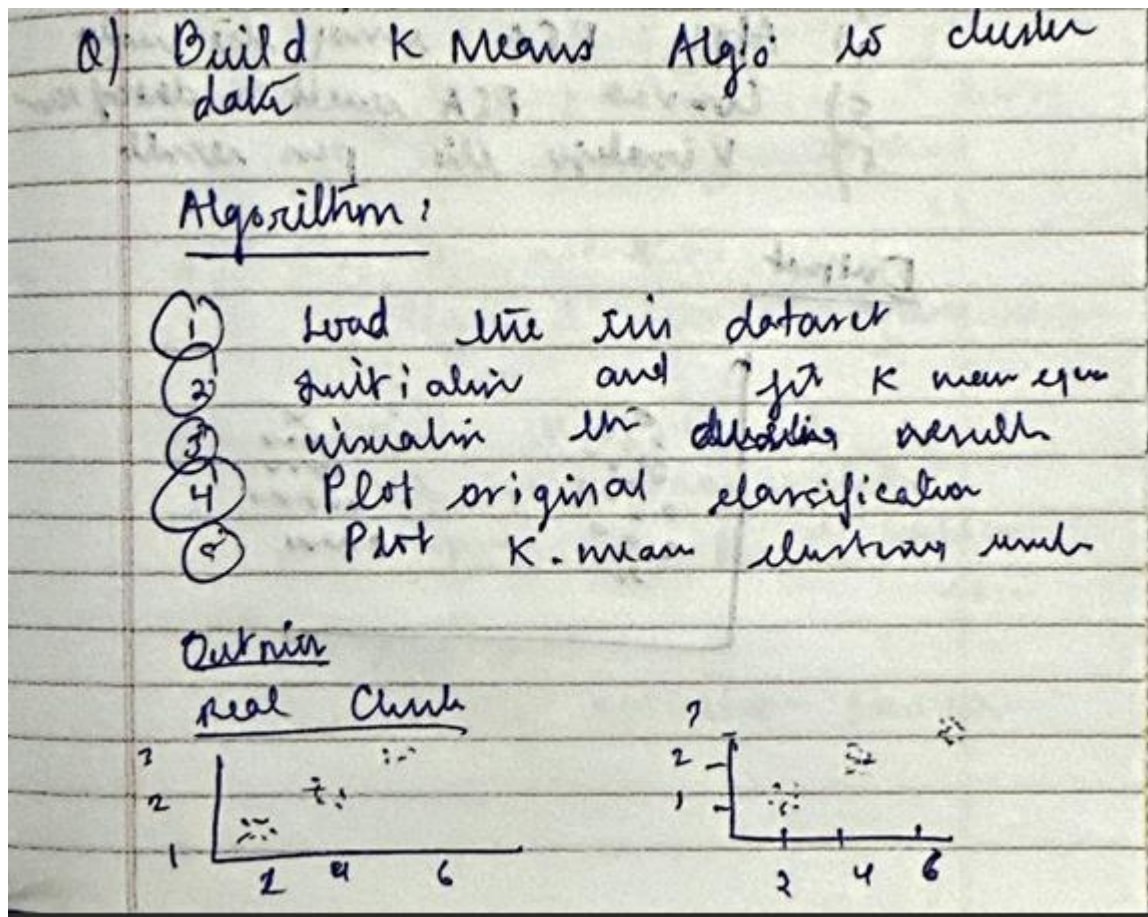 Q) Build K Means Algo to cluster
data
Algorithm:
1 Load the iris dataset
2 Initialin and fit K mean
3 visualin the results
4 Plot original classification
5 Plot K-mean clustering
Real
3
2
1
2 4 6
2
1
2 4 6